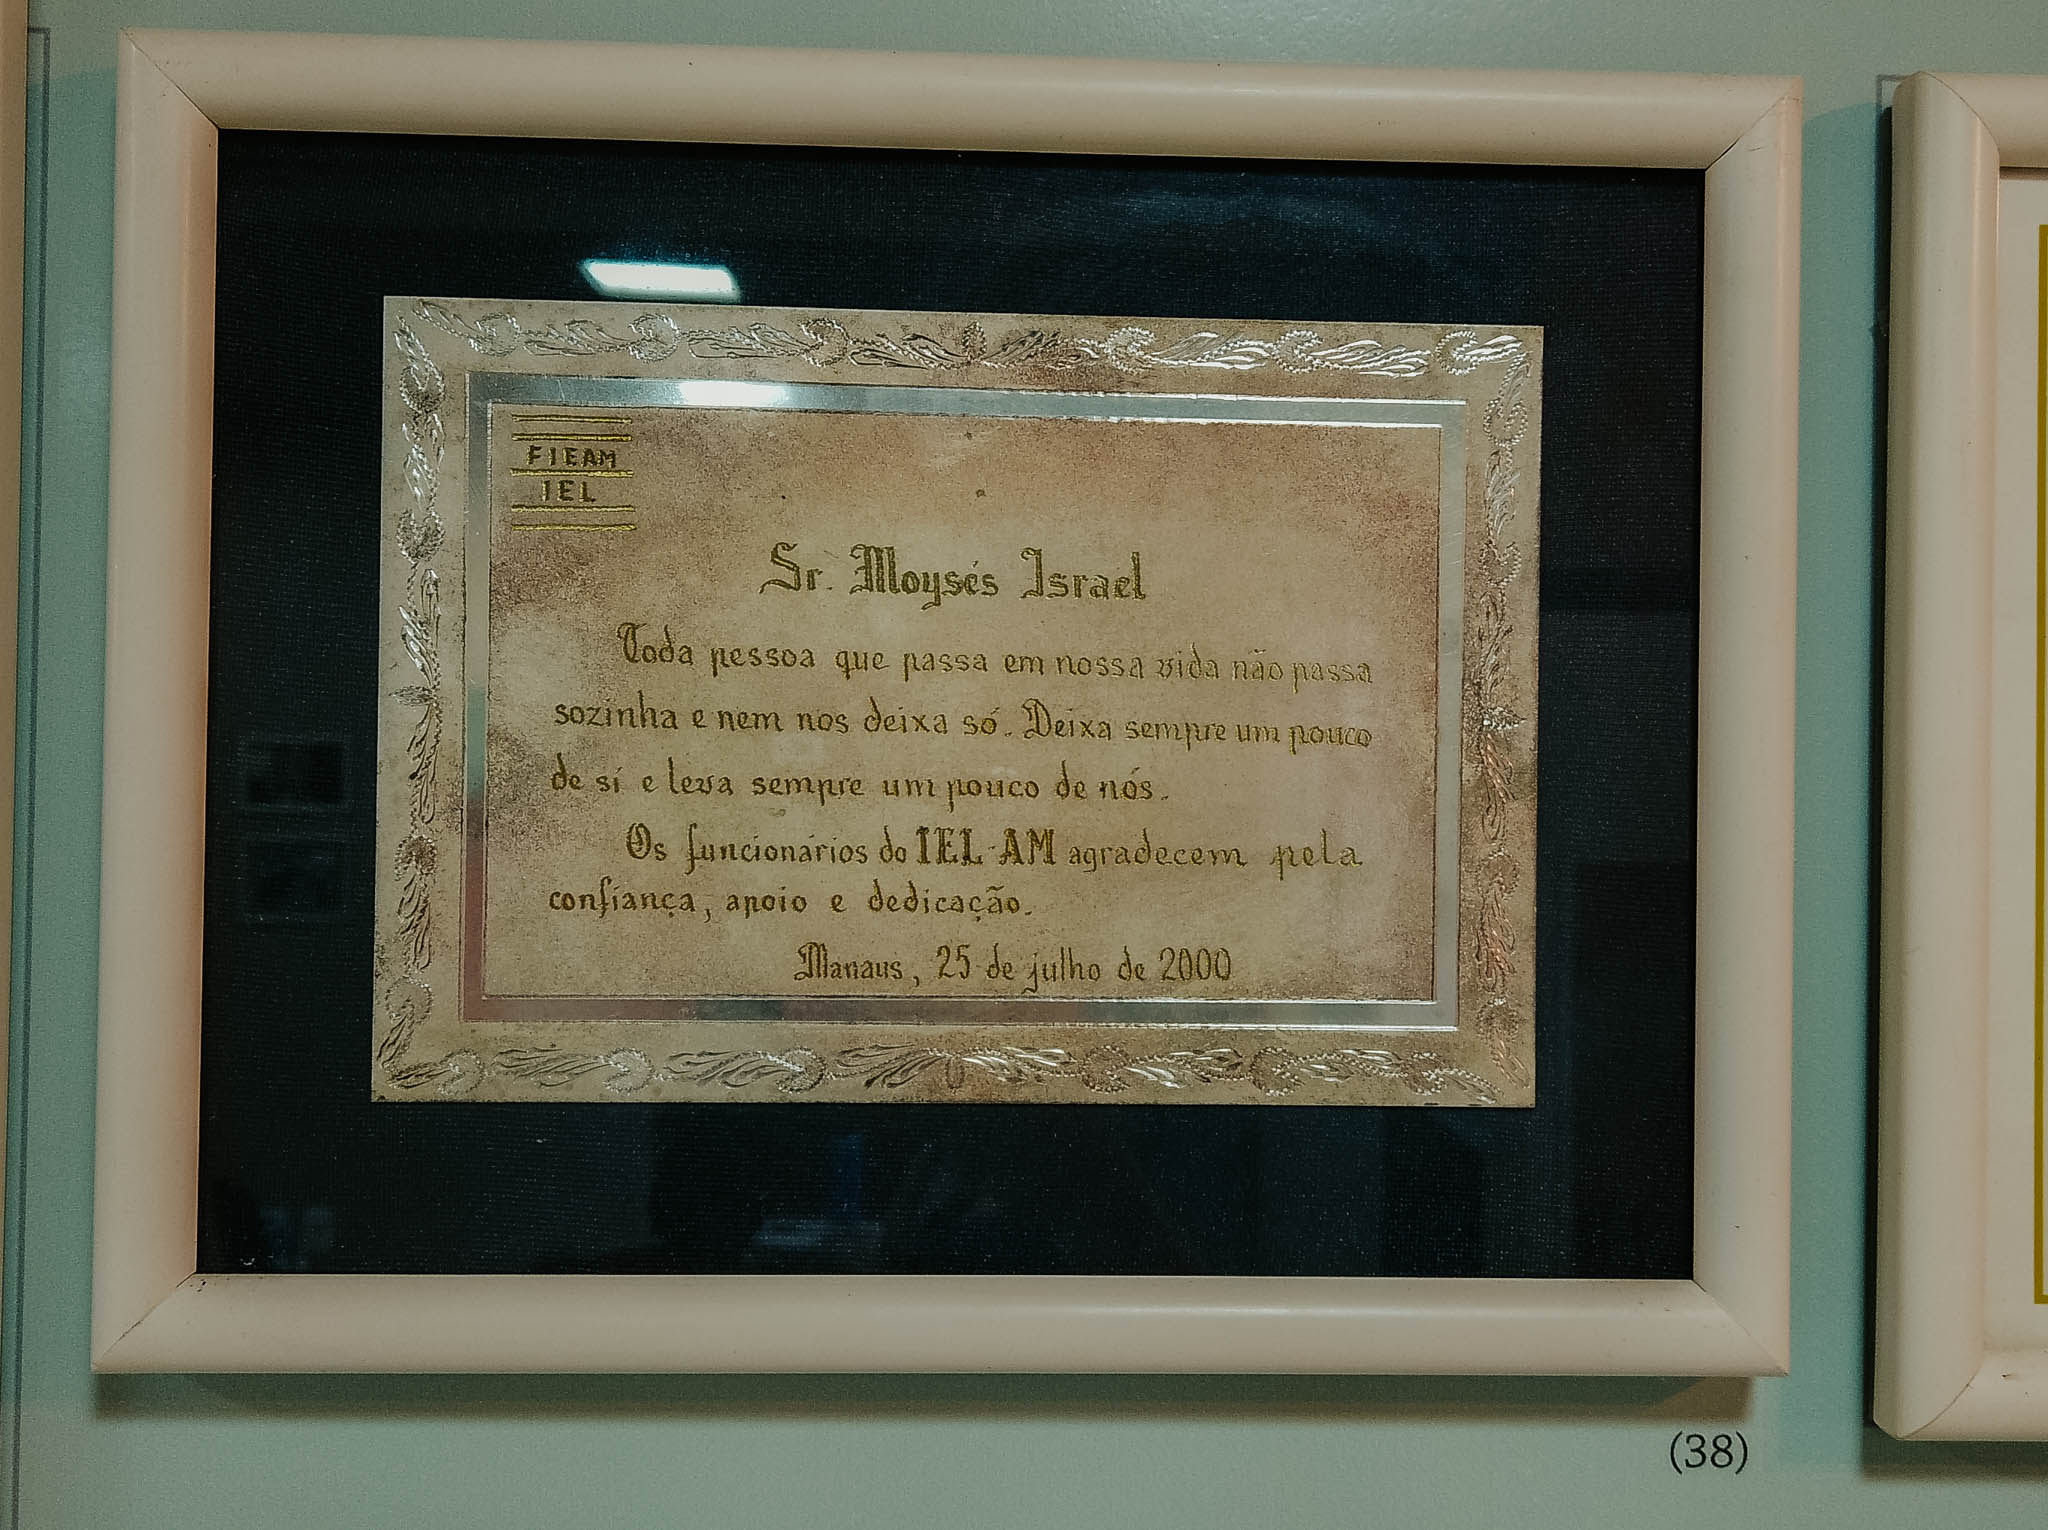 FIEAM
IEL
Sr. Moysés Israel
Toda pessoa que passa em nossa vida não passa
sozinha e nem nos deixa só. Deixa sempre um pouco
de si e leva sempre um pouco de nós.
Os funcionários do IEL-AM agradecem pela
confiança, apoio e dedicação.
Manaus, 25 de julho de 2000
(38)